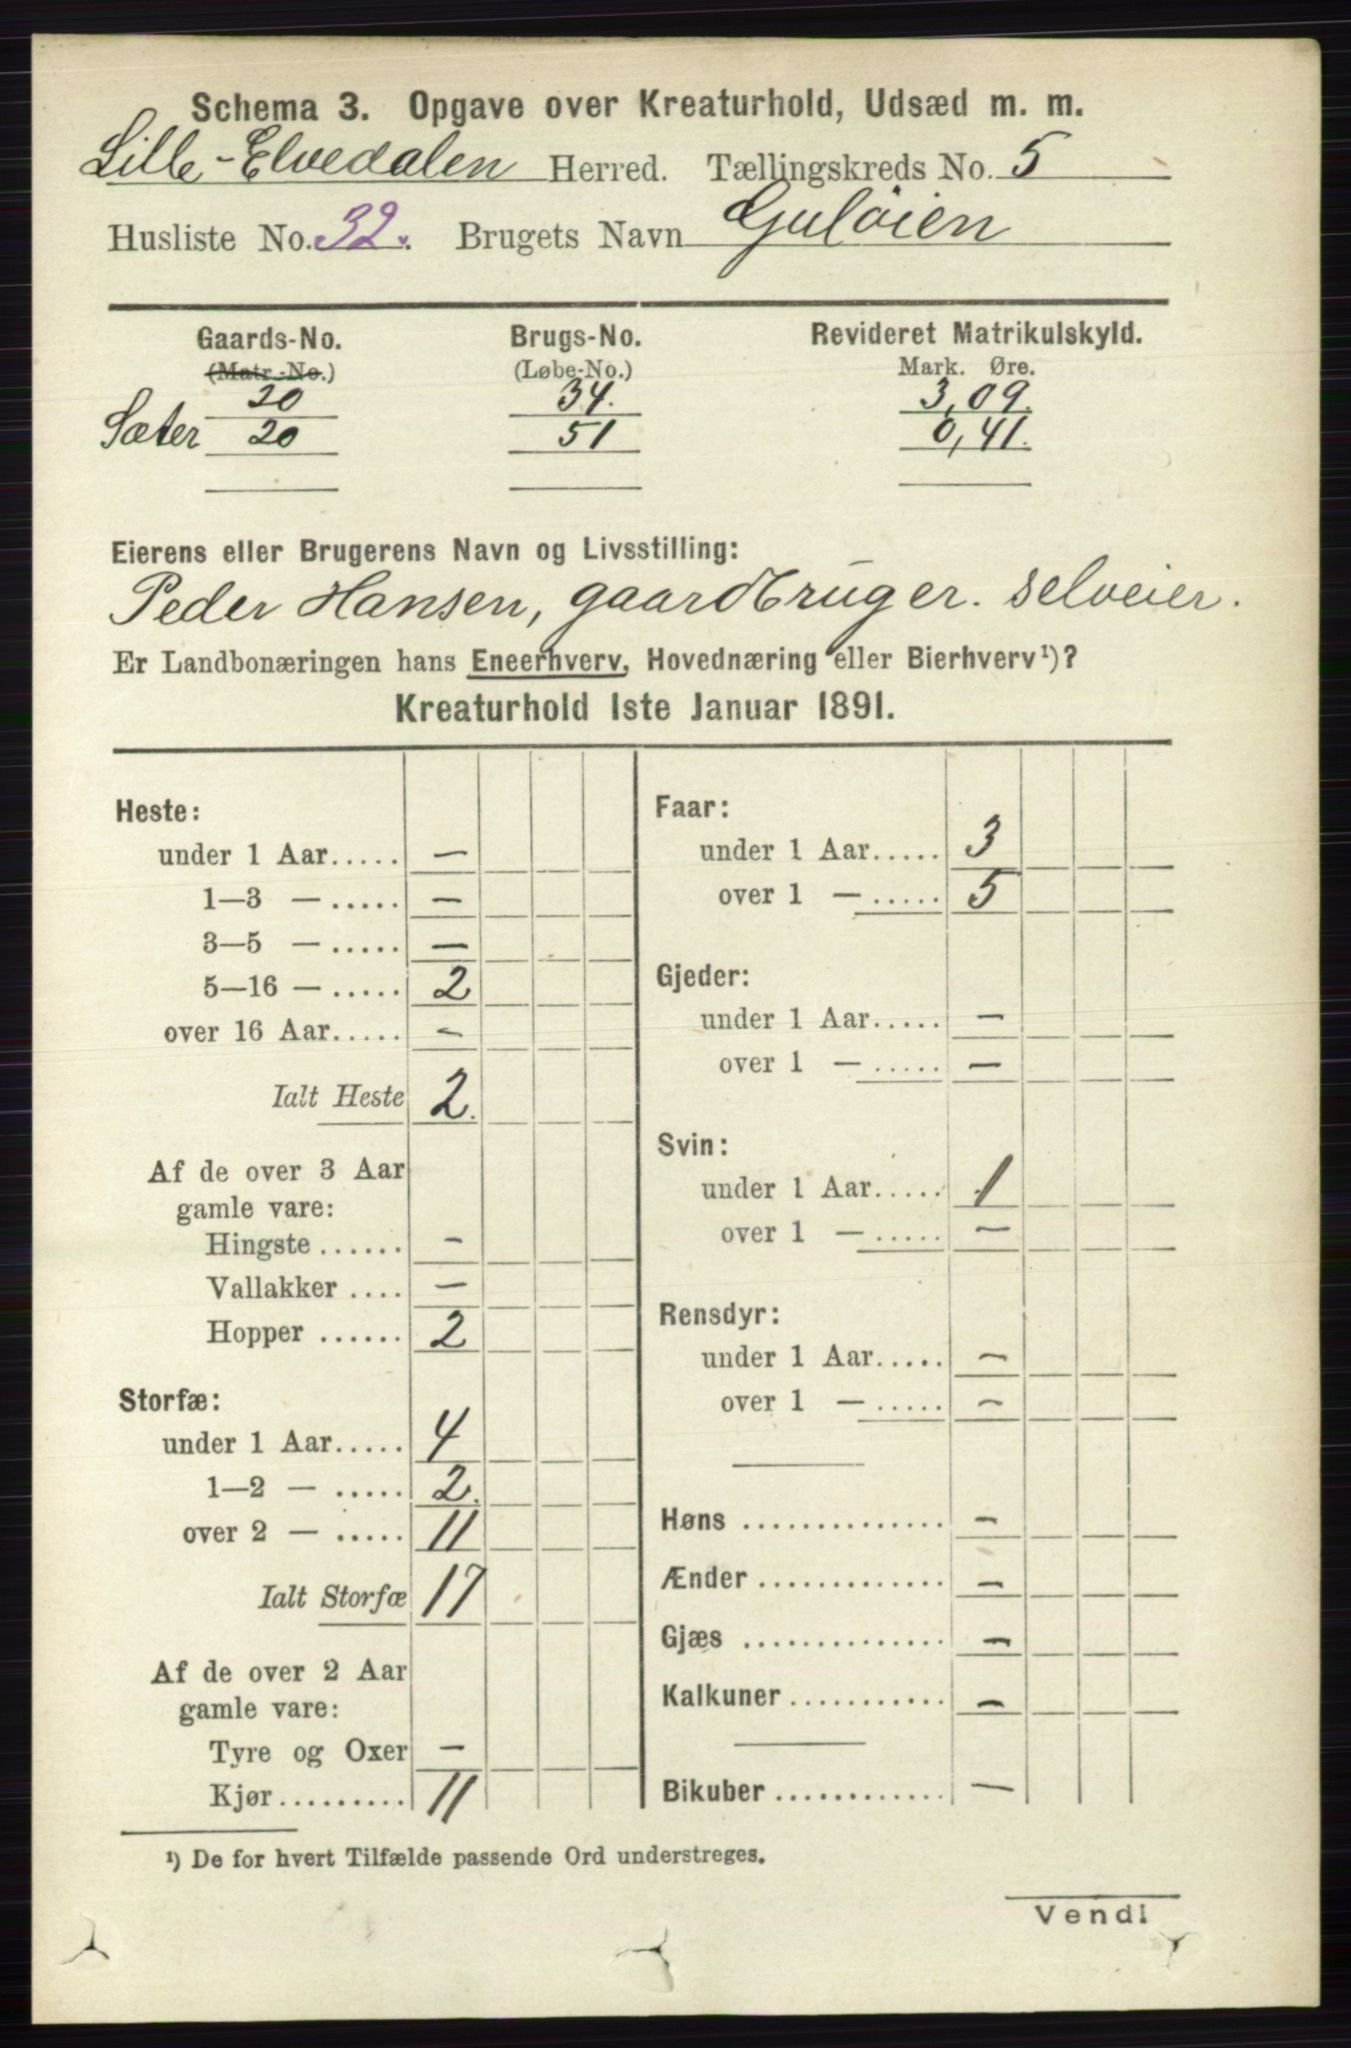 Schema 3. Opgave over Kreaturhold, Udsæd m. m.
Lille-Elvedalen Herred. Tællingskreds No. 5
Husliste No. 32. Brugets Navn Guløien
Gaards-No. Brugs-No. Revideret Matrikulskyld.
(Matr.-No.) (Løbe-No.) Mark. Øre.
20 34. 3,09.
Sæter 20 51 0,41.
Eierens eller Brugerens Navn og Livsstilling:
Peder Hansen, gaardbruger. selveier.
Er Landbonæringen hans Eneerhverv, Hovednæring eller Bierhverv¹)?
Kreaturhold 1ste Januar 1891.
Heste:
under 1 Aar..... —
1—3 — ..... —
3—5 — ..... —
5—16 — ..... 2
over 16 Aar..... —
Ialt Heste 2.
Af de over 3 Aar
gamle vare:
Hingste ...... —
Vallakker .... —
Hopper ...... 2
Storfæ:
under 1 Aar..... 4
1—2 — ..... 2.
over 2 — ..... 11
Ialt Storfæ 17
Af de over 2 Aar
gamle vare:
Tyre og Oxer —
Kjør......... 11
Faar:
under 1 Aar..... 3
over 1 — ..... 5
Gjeder:
under 1 Aar..... —
over 1 — ..... —
Svin:
under 1 Aar..... 1
over 1 — ..... —
Rensdyr:
under 1 Aar..... —
over 1 — ..... —
Høns .............. —
Ænder ............. —
Gjæs .............. —
Kalkuner ........... —
Bikuber ............ —
¹) De for hvert Tilfælde passende Ord understreges.
Vend!